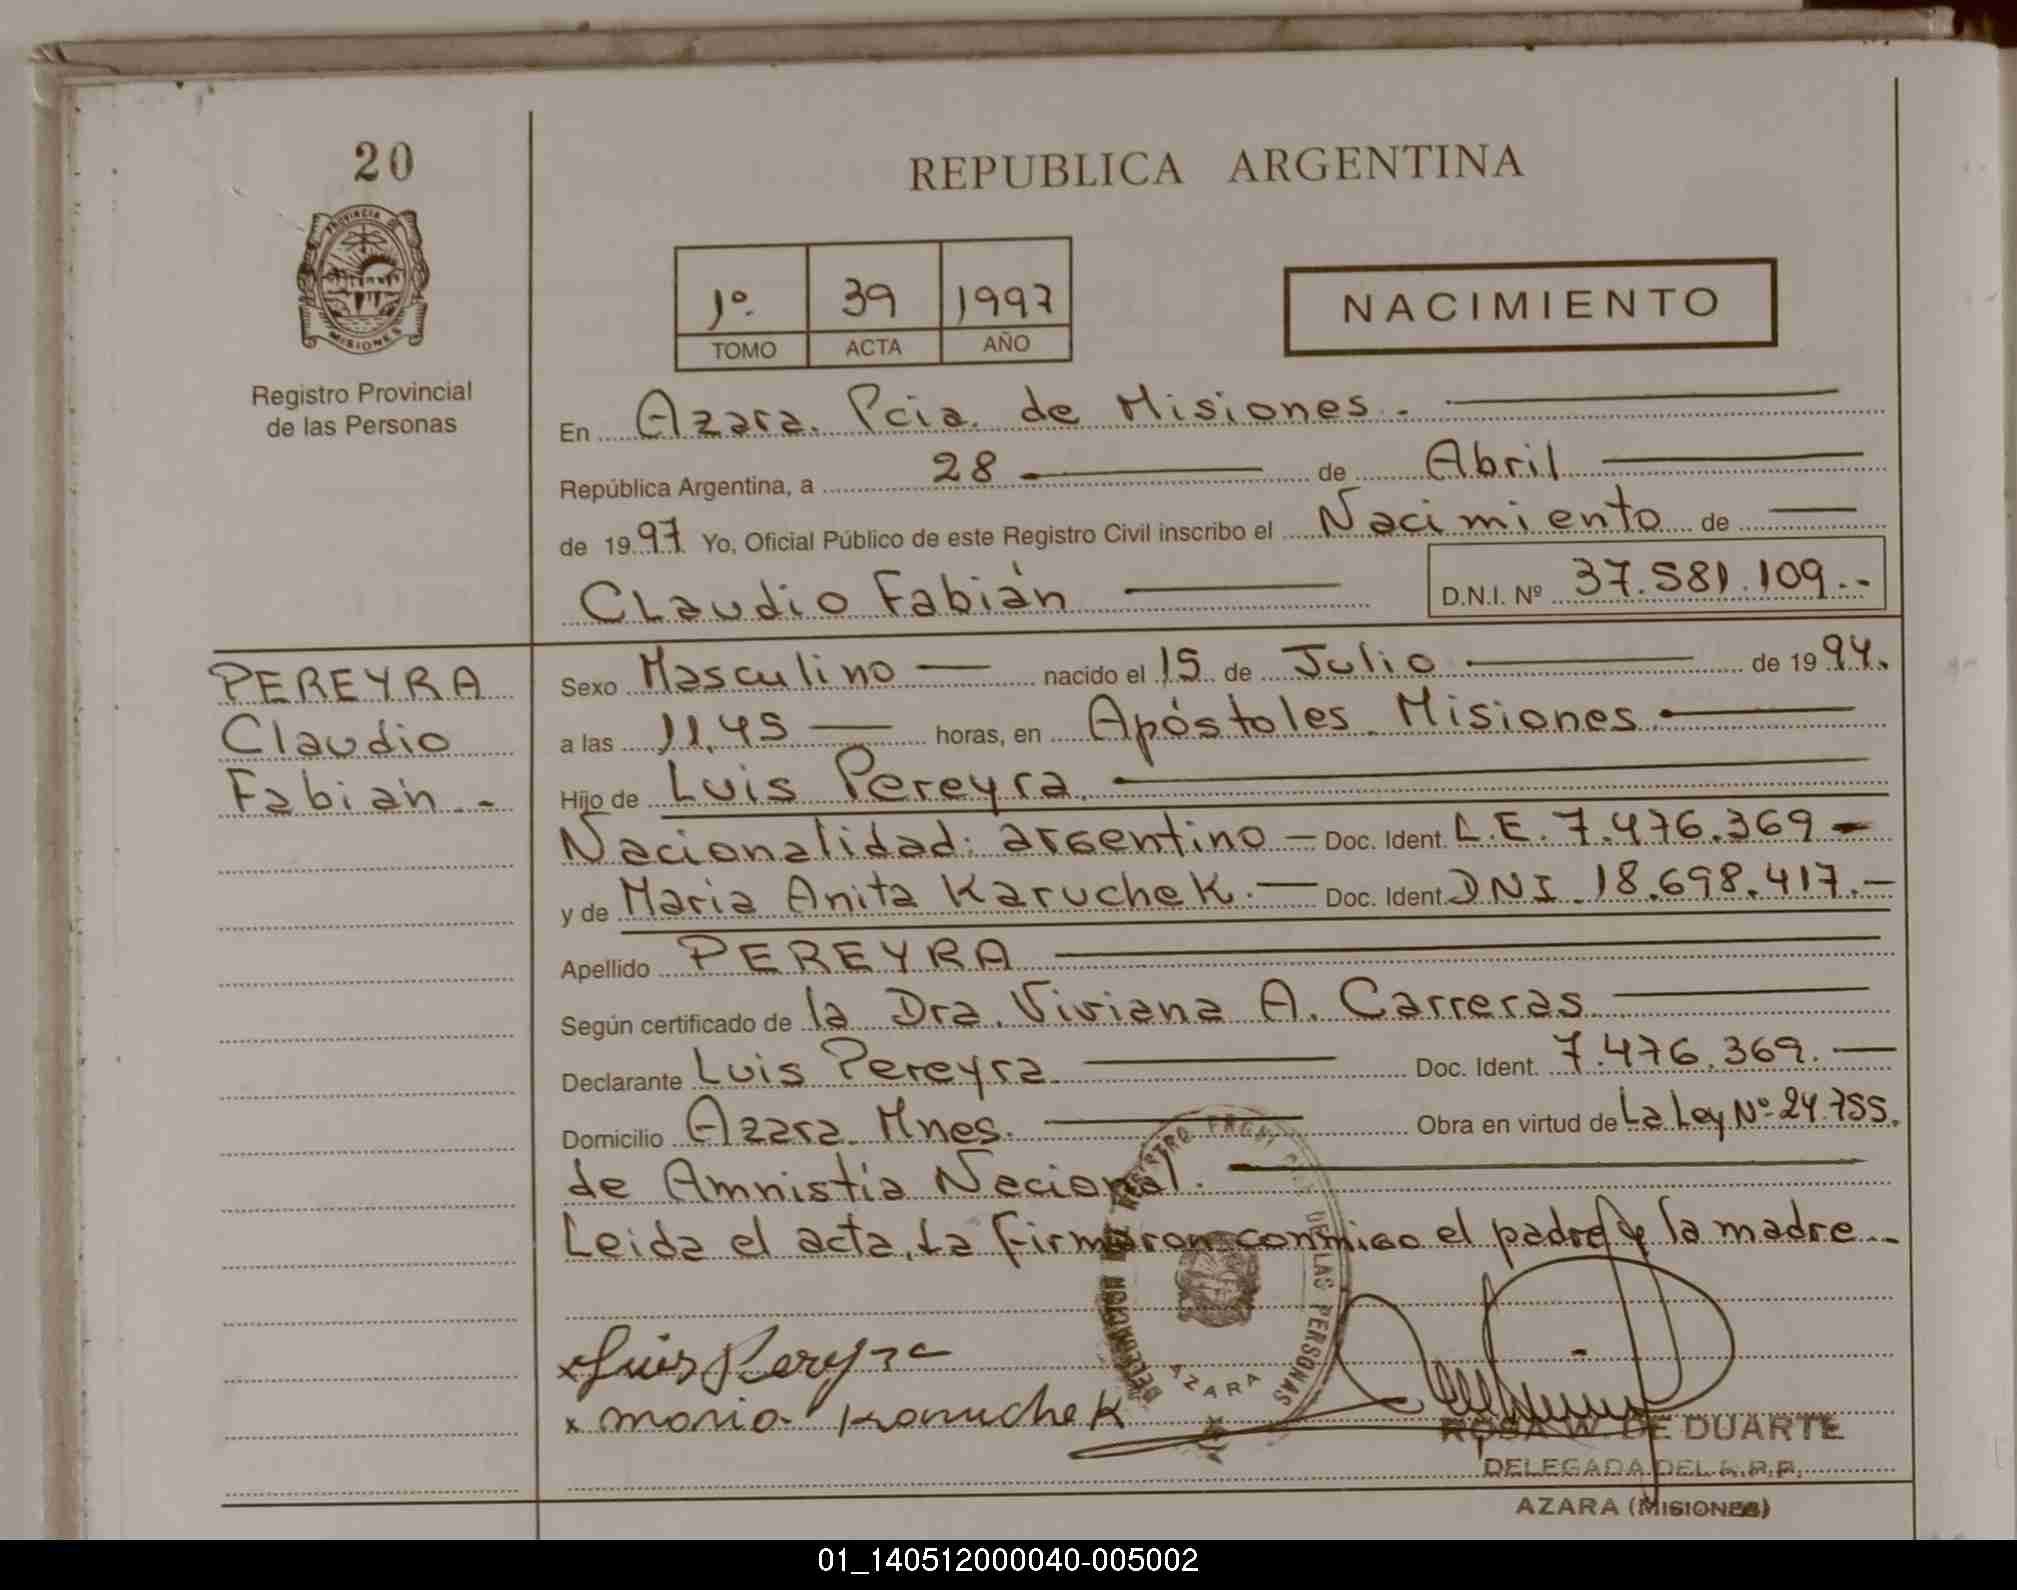 20
PROVINCIA DE
MISIONES
Registro Provincial
de las Personas
REPUBLICA ARGENTINA
1º. 39 1997
TOMO ACTA AÑO
NACIMIENTO
En Azara. Pcia. de Misiones.-
República Argentina, a 28 de Abril
de 1997 Yo, Oficial Público de este Registro Civil inscribo el Nacimiento de
Claudio Fabián D.N.I. Nº 37.581.109.-
PEREYRA
Claudio
Fabián.-
Sexo Masculino nacido el 15 de Julio de 1994.
a las 11,45 horas, en Apóstoles. Misiones.
Hijo de Luis Pereyra.
Nacionalidad: argentino - Doc. Ident. L.E. 7.476.369-
y de Maria Anita Karuchek.- Doc. Ident. DNI. 18.698.417.-
Apellido PEREYRA
Según certificado de la Dra. Viviana A. Carreras
Declarante Luis Pereyra Doc. Ident. 7.476.369.-
Domicilio Azara. Mnes. Obra en virtud de La Ley Nº 24.755.
de Amnistía Nacional.
Leida el acta, La firmaron conmigo el padre y la madre.-
DELEGACION REGISTRO PROVINCIAL DE LAS PERSONAS
AZARA
x Luis Pereyra
x Maria Karuchek
ROSA W. DE DUARTE
DELEGADA DEL R.P.P.
AZARA (MISIONES)
01_140512000040-005002